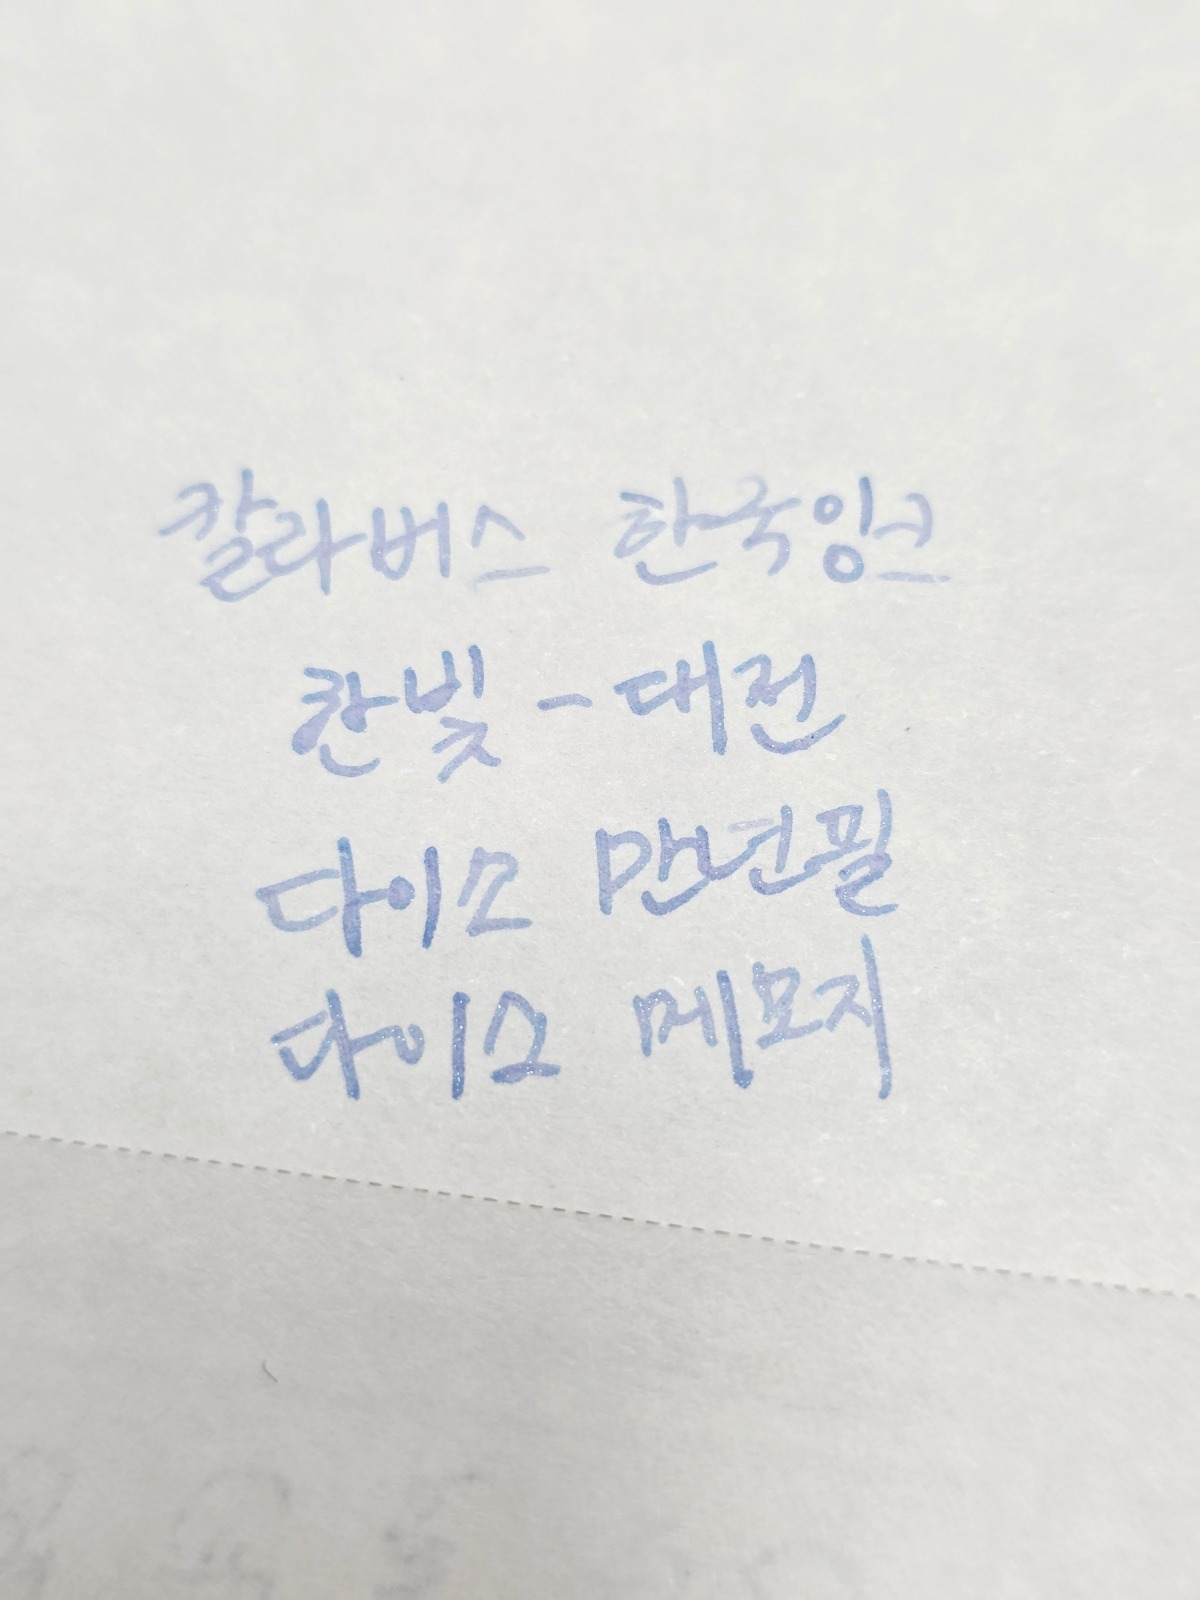 칼라버스 한국잉크
한빛 - 대전
다이소 만년필
다이소 메모지